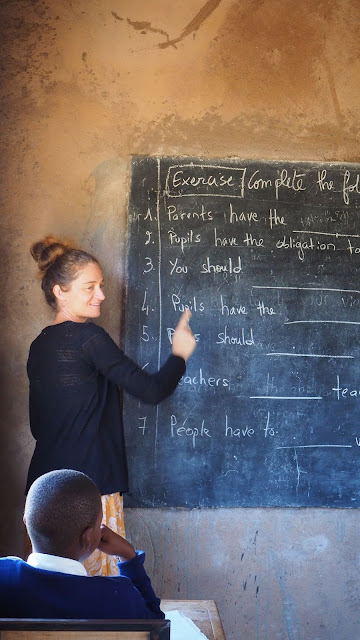 Exercise Complete the fol
1. Parents have the
2. Pupils have the obligation to
3 You should
4. Pupils have the
5. should
teachers tea
7 People have to.